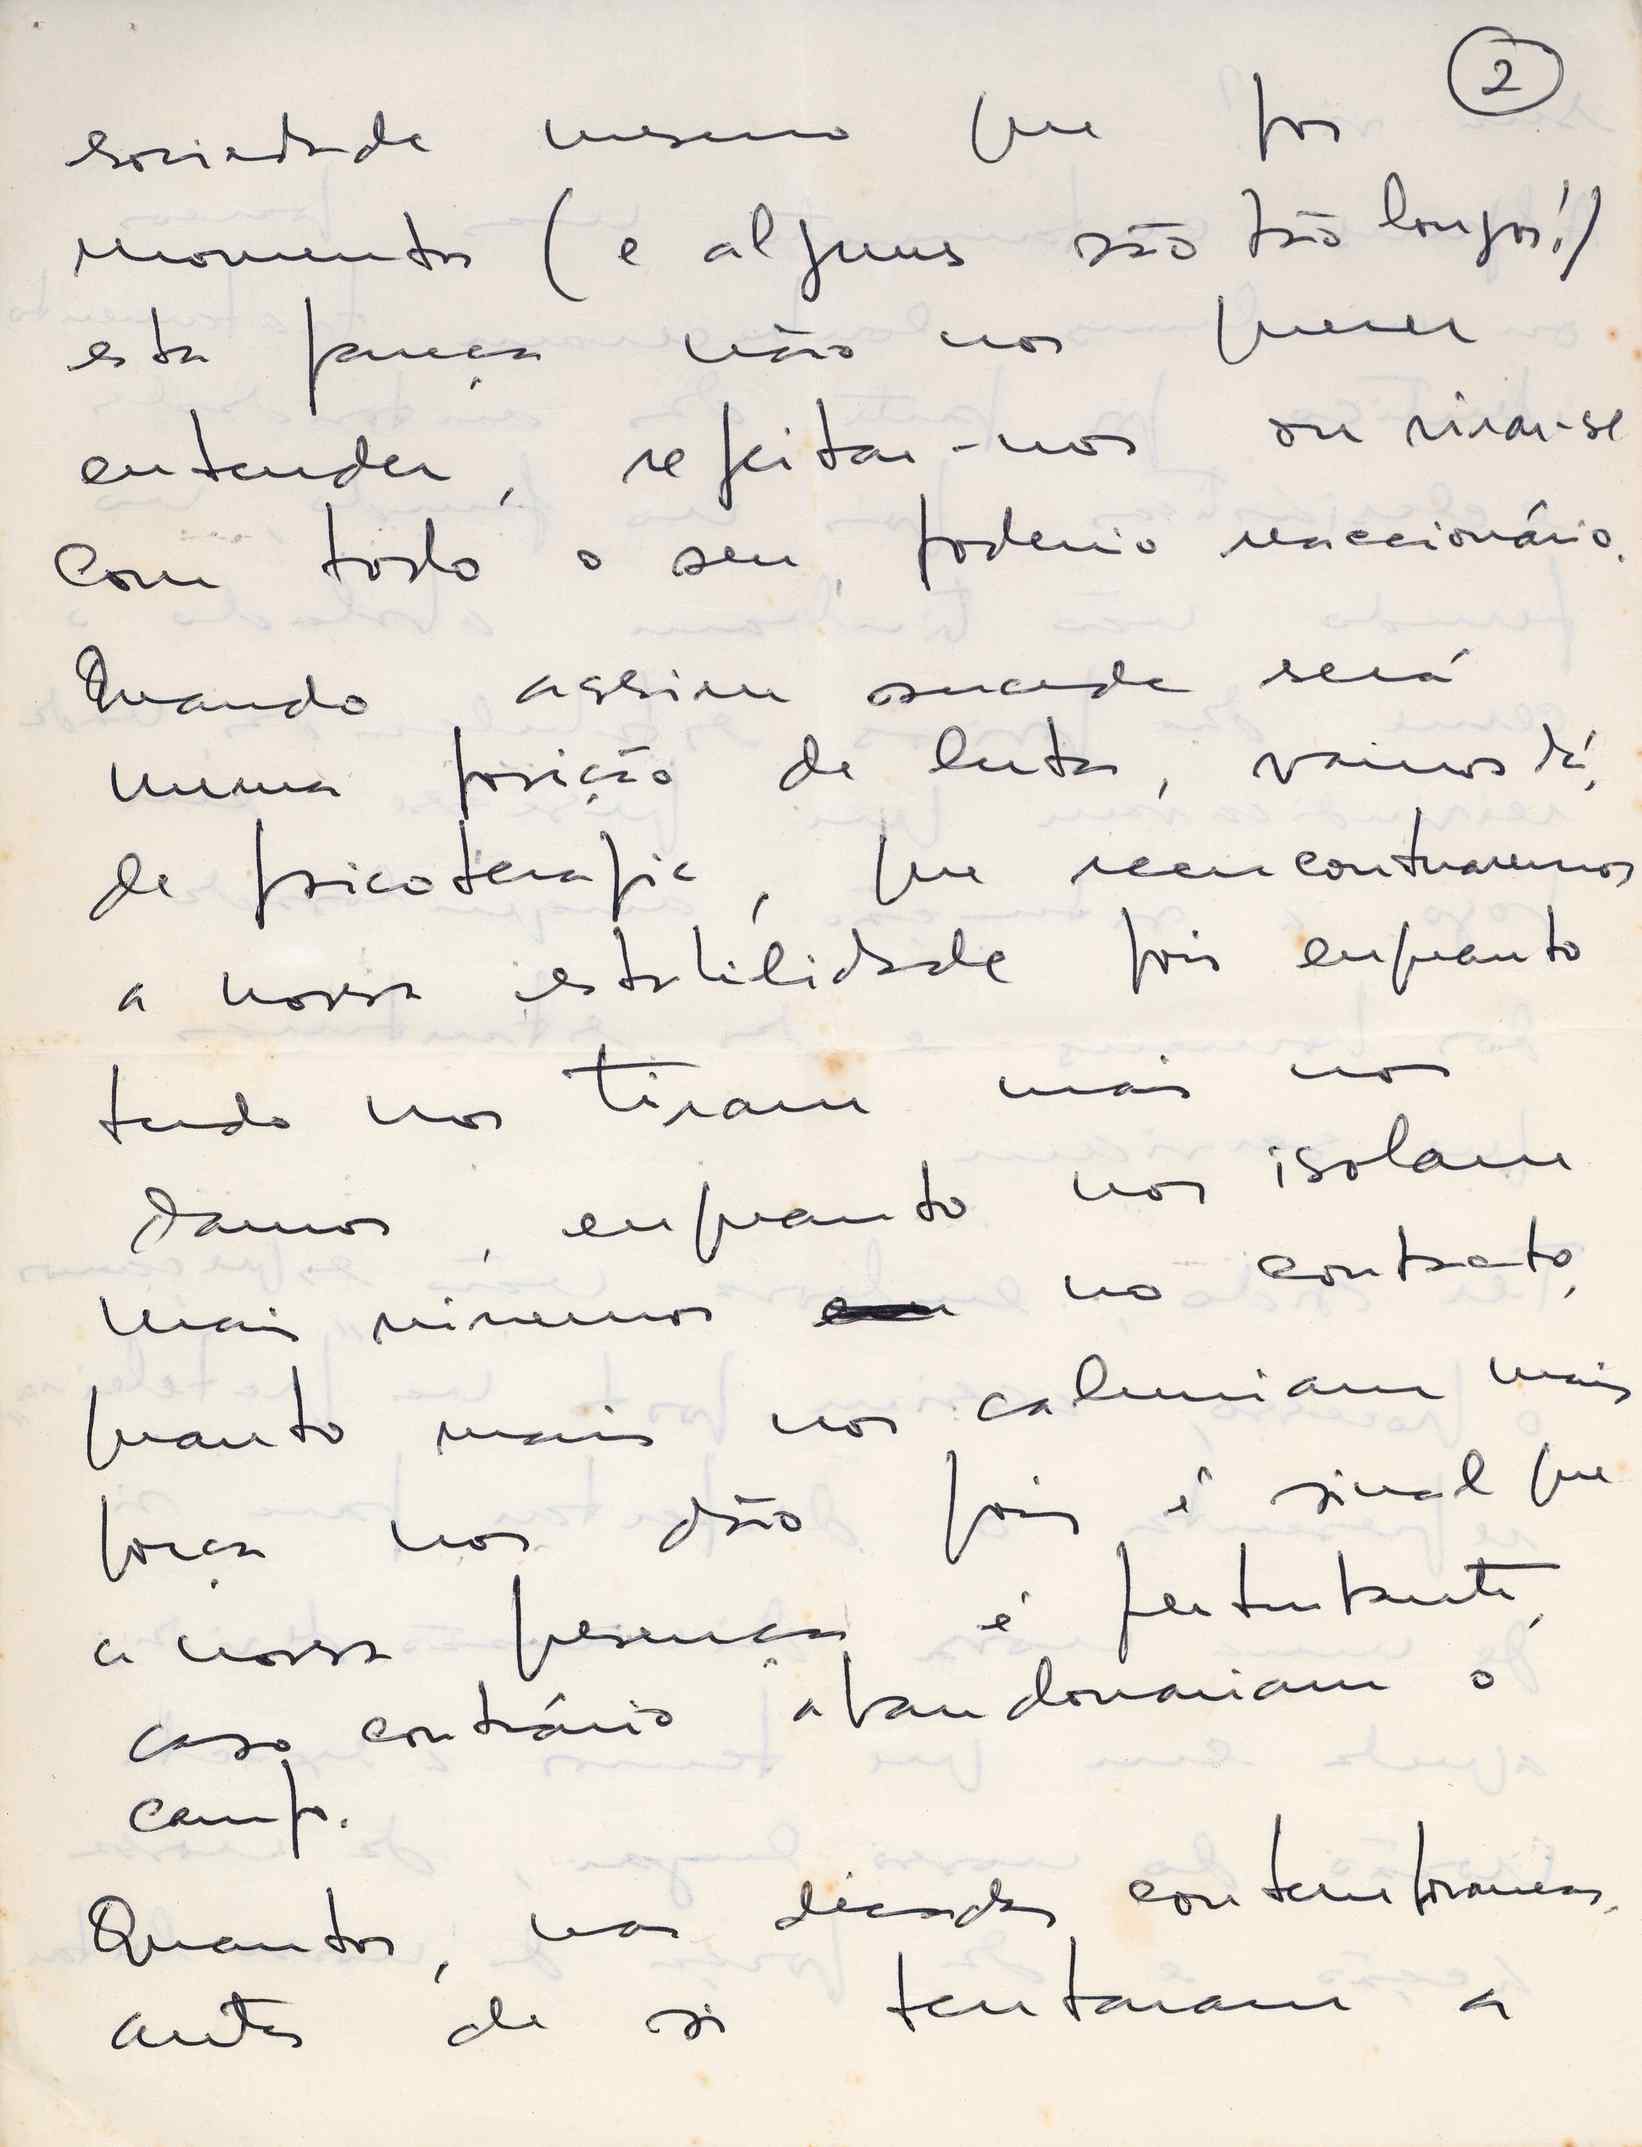 2
sociedade mesmo que por
momentos (e alguns são tão longos!)
esta pareça não nos querer
entender, rejeitar-nos ou virar-se
com todo o seu poderio reaccionário.
Quando assim sucede será
numa posição de luta, vamos lá,
de psicoterapia, que reencontraremos
a nossa estabilidade pois enquanto
tudo nos tiram mais nos
damos, enquanto nos isolam
mais vivemos no contacto,
quanto mais nos caluniam mais
força nos dão pois é sinal que
a nossa presença é perturbante,
caso contrário abandonariam o
campo.
Quantos, nas décadas contemporâneas,
antes de si tentaram a